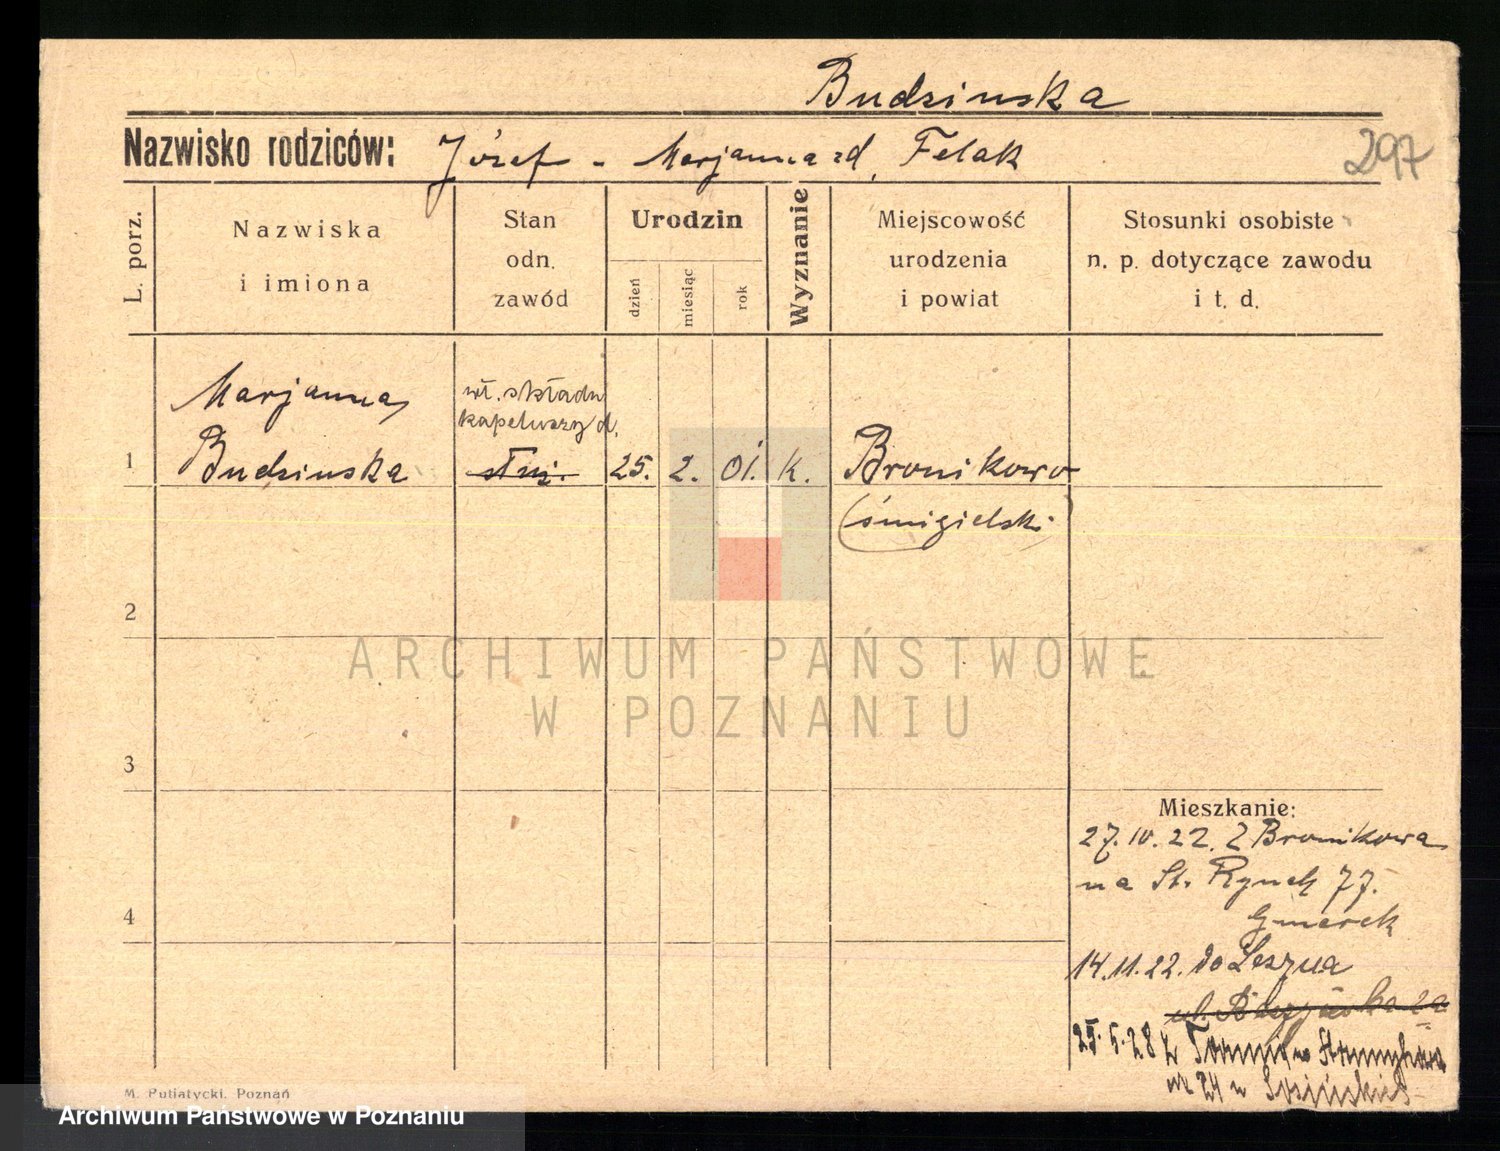 Budzinska
Nazwisko rodziców: Józef - Marjanna zd. Felak
297
L. porz.
Nazwiska
i imiona
Stan
odn.
zawód
Urodzin
dzień
miesiąc
rok
Wyznanie
Miejscowość
urodzenia
i powiat
Stosunki osobiste
n. p. dotyczące zawodu
i t. d.
1
Marjanna
Budzinska
wł. składu
kapeluszy d.
służ.
25. 2. 01. k.
Bronikowo
(śmigielski)
2
3
4
ARCHIWUM PAŃSTWOWE
W POZNANIU
Mieszkanie:
27.10.22. Z Bronikowa
na St. Rynek 77.
14.11.22. do Leszna
ul.
25.5.28 z
nr 24 u
M. Putiatycki, Poznań
Archiwum Państwowe w Poznaniu